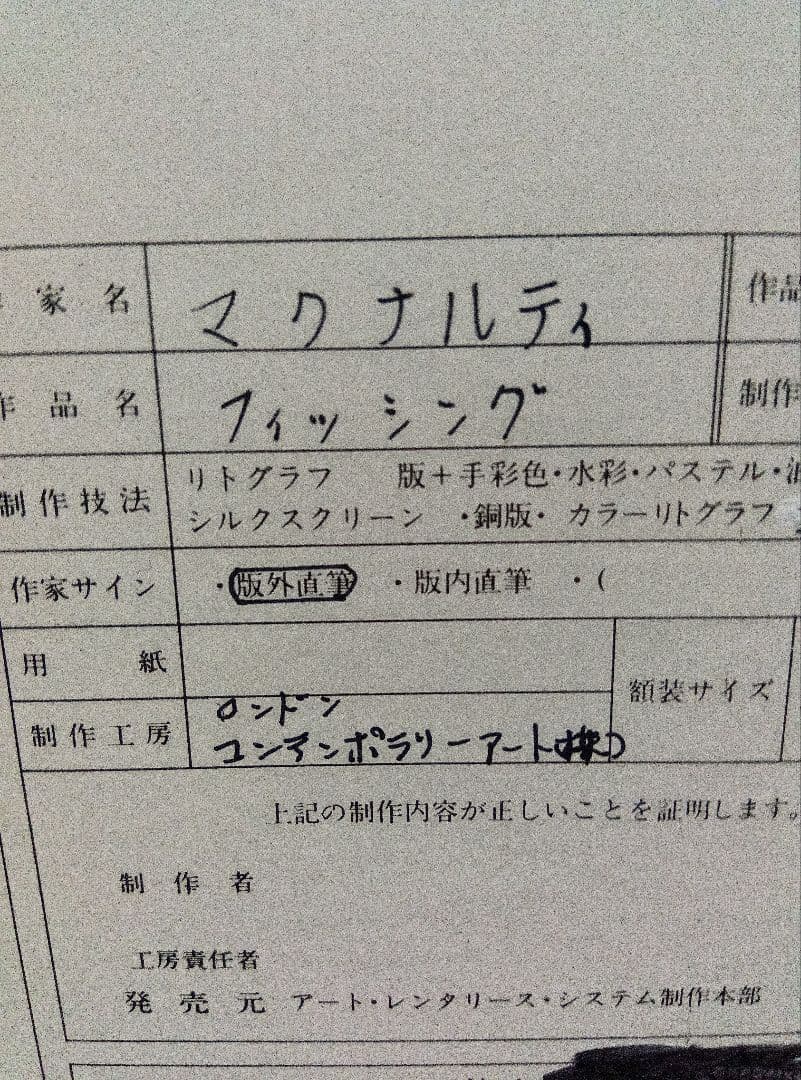 家名 マクナルティ 作品
作品名 フィッシング 制作
制作技法 リトグラフ 版+手彩色・水彩・パステル・油
シルクスクリーン ・銅版・ カラーリトグラフ
作家サイン ・版外直筆 ・版内直筆 ・(
用紙 額装サイズ
制作工房 ロンドン
コンテンポラリーアート(株)
上記の制作内容が正しいことを証明します。
制作者
工房責任者
発売元 アート・レンタリース・システム制作本部